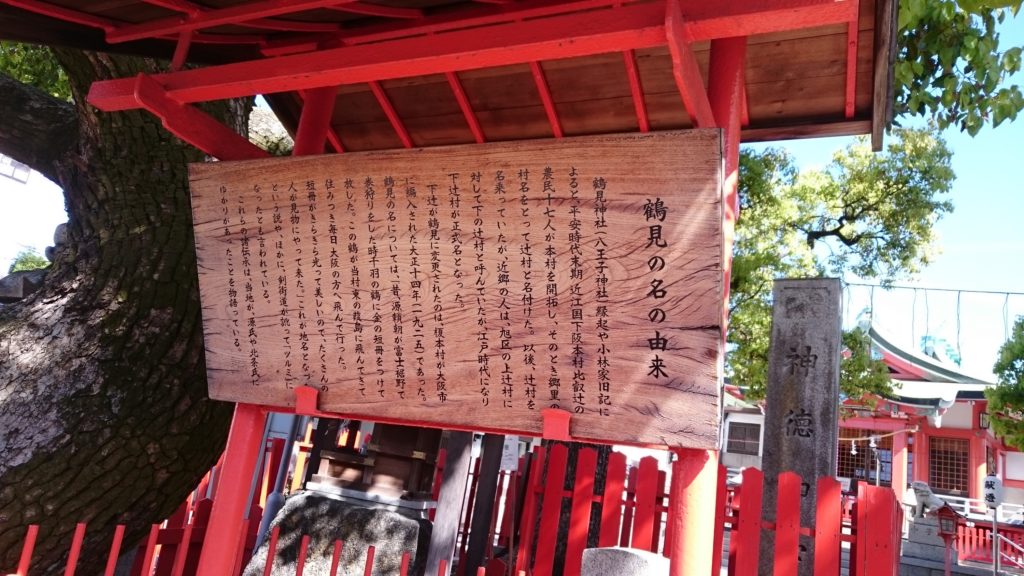 鶴見の名の由来
鶴見神社(八王子神社)縁起や小林家旧記に
よると、平安時代末期、近江国下阪本村比叡辻の
農民十七人が本村を開拓し、そのとき郷里の
村名をとって辻村と名付けた。以後、辻村を
名乗っていたが、近郷の人は、旭区の上辻村に
対して下の辻村と呼んでいたが、江戸時代になり
下辻村が正式名となった。
下辻が鶴見に変更されたのは、榎本村が大阪市
に編入された大正十四年(一九二五)であった。
鶴見の名については、昔、源頼朝が富士の裾野で
巻狩りをした時、千羽の鶴に金の短冊をつけて
放した。この鶴が当村東の
住みつき毎日、大阪の方へ飛んで行った。
短冊がきらきらと光って美しいので、たくさんの
人が見物にやって来た。これが地名となった
という説や、ほかに、剣街道が訛って、ツルミに
なったとも言われている。
これらの諸伝承は、当地が、源氏や北条氏に
ゆかりがあったことを物語っている。
神徳
献